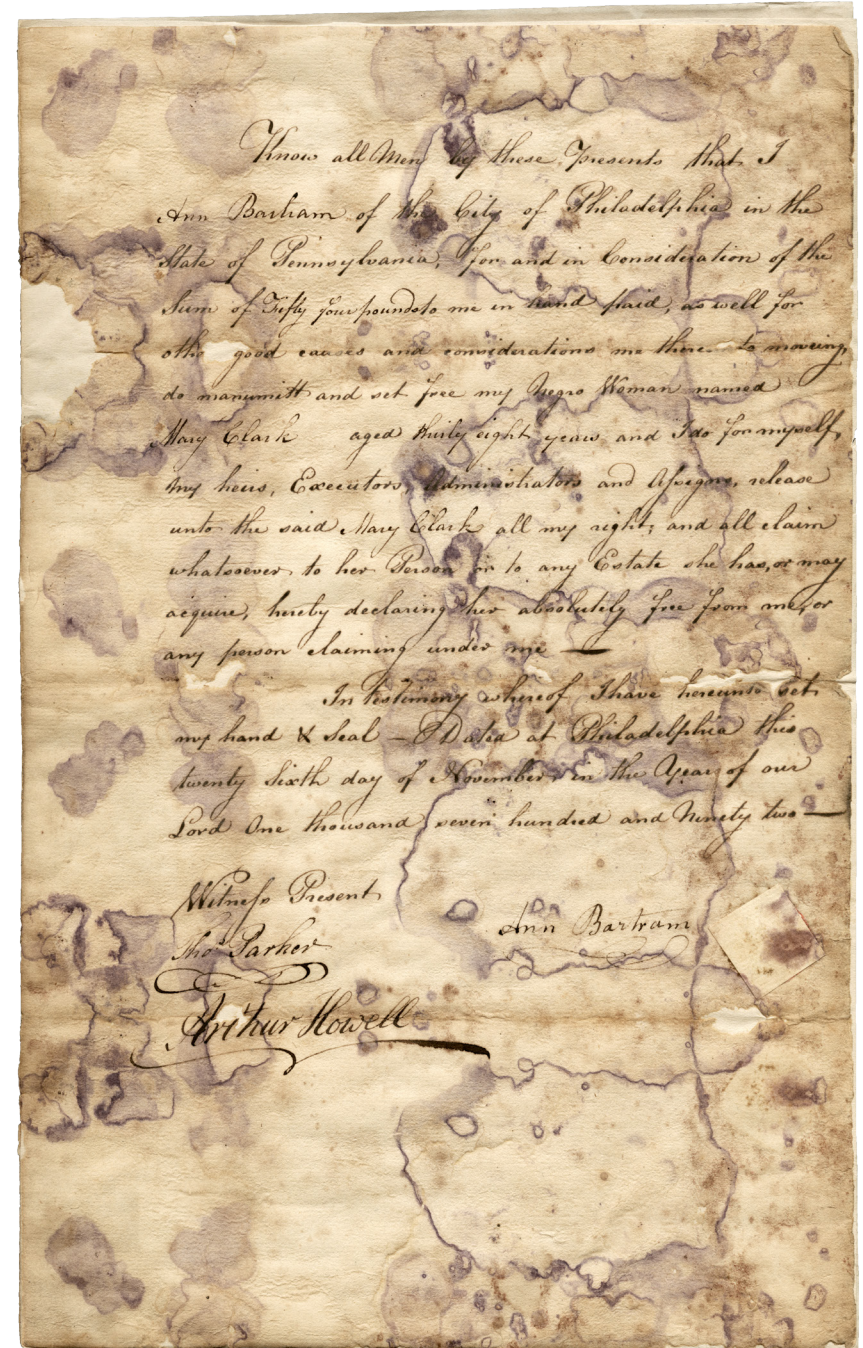 Know all Men by these Presents that I
Ann Bartram of the City of Philadelphia in the
State of Pennsylvania, for and in Consideration of the
Sum of Fifty four pounds to me in hand paid, as well for
othe good causes and considerations me there to moveing,
do manumitt and set free my Negro Woman named
Mary Clark aged thirty eight years and I do for myself,
my heirs, Executors, Administrators and Assigns, release
unto the said Mary Clark all my right, and all claim
whatsoever to her Person or to any Estate she has, or may
acquire, hereby declaring her absolutely free from me, or
any person claiming under me —
In testimony whereof I have hereunto set
my hand & Seal — Dated at Philadelphia this
twenty Sixth day of November in the Year of our
Lord One thousand seven hundred and Ninety two —
Witness Present
Thos Parker
Ann Bartram
Arthur Howell